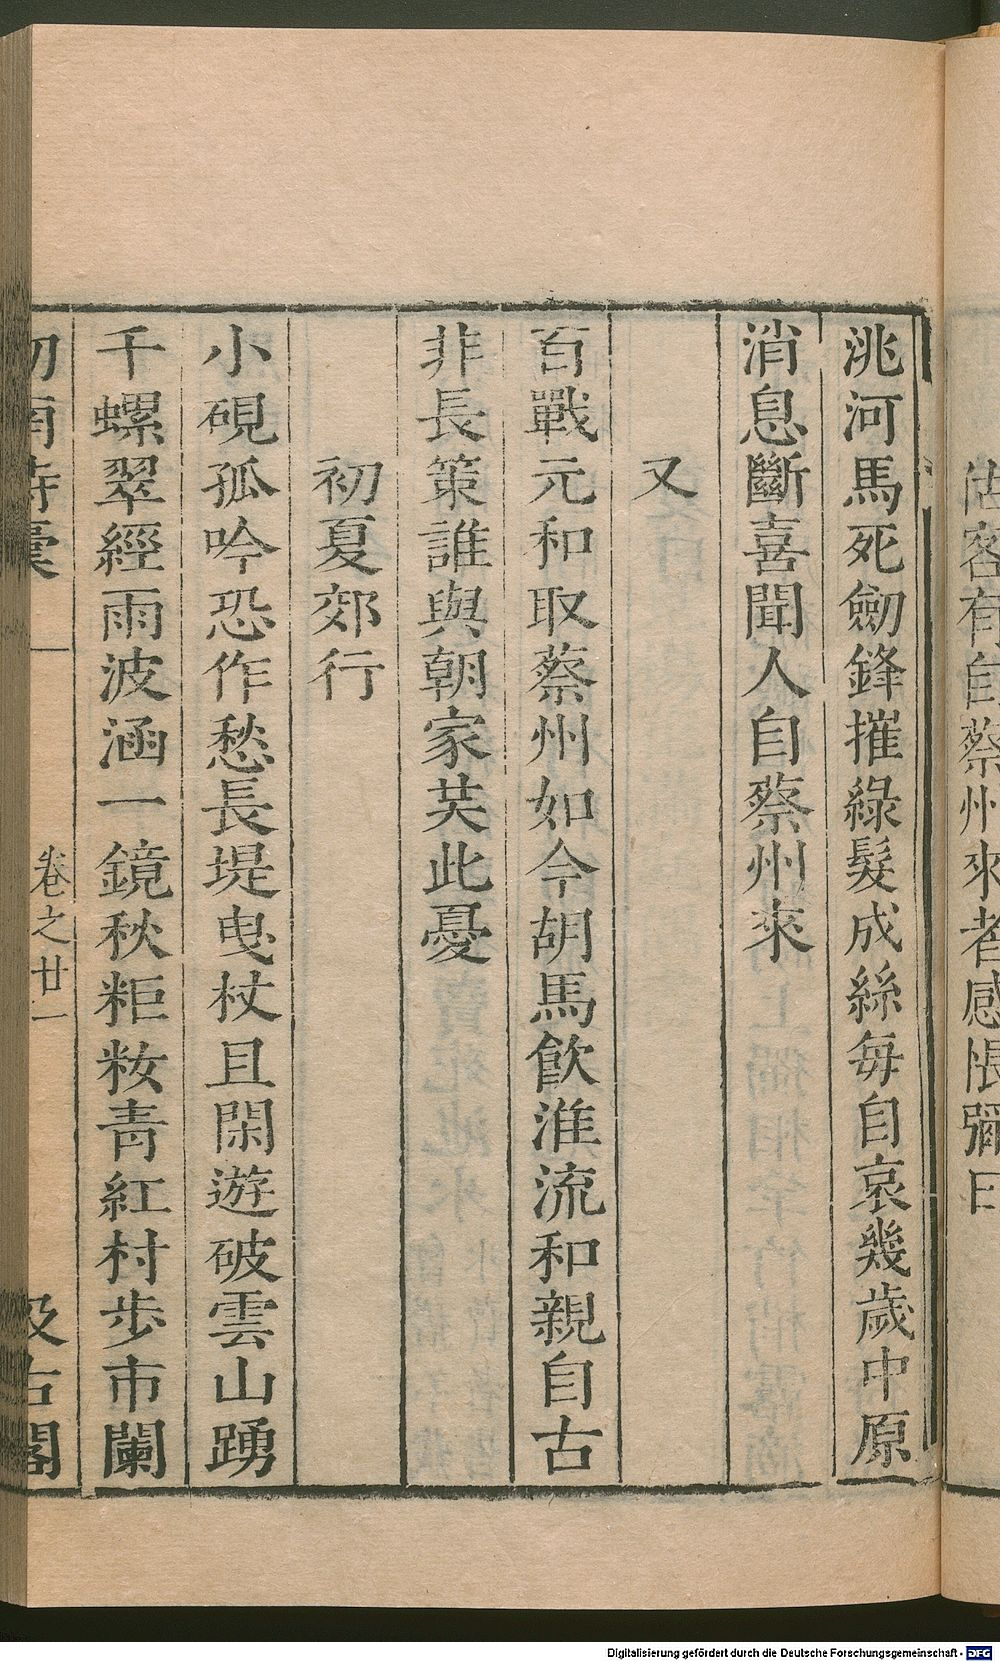 估客有自蔡州來者感悵彌日
洮河馬死劒鋒摧綠髮成絲每自哀幾歲中原
消息斷喜聞人自蔡州來
又
百戰元和取蔡州如今胡馬飲淮流和親自古
非長策誰與朝家共此憂
初夏郊行
小硯孤吟恐作愁長堤曳杖且閑遊破雲山踴
千螺翠經雨波涵一鏡秋粔籹青紅村步市闌
劍南詩稾 卷之廿一 汲古閣
Digitalisierung gefördert durch die Deutsche Forschungsgemeinschaft - DFG